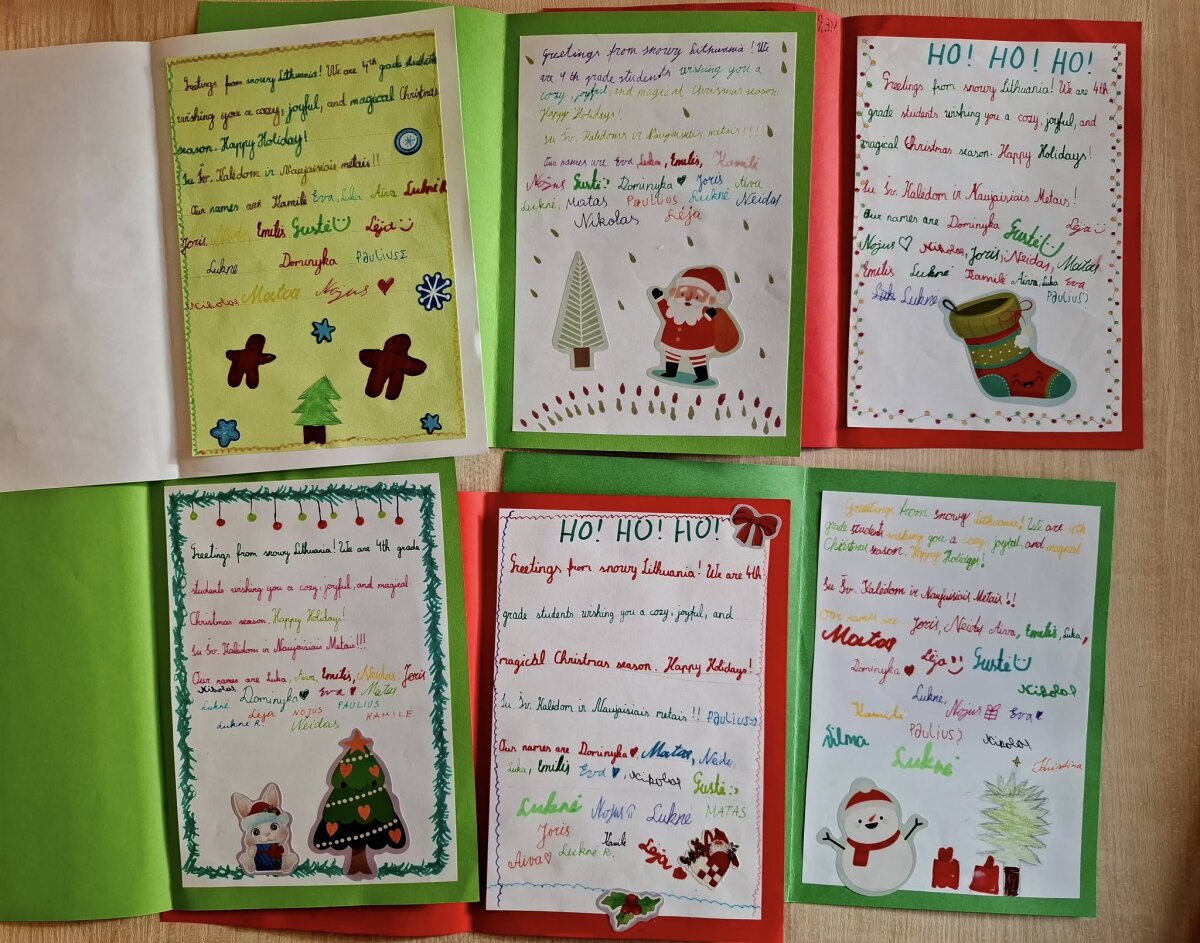 Greetings from snowy Lithuania! We are 4th grade students
wishing you a cozy, joyful, and magical Christmas
season. Happy Holiday!
Su Šv. Kalėdom ir Naujaisiais metais!!
Our names are Kamilė Eva, Luka Aiva Luknė R
Joris, Neidas, Emilis Gustė Lėja
Luknė Dominyka PAULIUS
Nikolas Matas Nojus
Greetings from snowy Lithuania! We
are 4th grade students wishing you a
cozy, joyful, and magical Christmas season.
Happy Holidays!
Su Šv. Kalėdoms ir Naujaisiais metais!!!
Our names are Eva, Luka, Emilis, Kamilė
Nojus Gustė Dominyka Joris Aiva
Luknė, MATAS PAULIUS Luknė Neidas
Nikolas Lėja
HO! HO! HO!
Greetings from snowy Lithuania! We are 4th
grade students wishing you a cozy, joyful, and
magical Christmas season. Happy Holidays!
Su Šv. Kalėdom ir Naujaisiais Metais!
Our names are Dominyka Gustė! Lėja
Nojus Nikolas, Joris, Neidas, Matas
Emilis Luknė Kamilė Aiva, Luka Eva
Luknė PAULIUS?
Greetings from snowy Lithuania! We are 4th grade
students wishing you a cozy, joyful, and magical
Christmas season. Happy Holidays!
Su Šv. Kalėdom ir Naujaisiais Metais!!!
Our names are Luka, Aiva, Emilis, Neidas Joris
Nikolas Dominyka Eva Matas
Luknė Lėja NOJUS PAULIUS
Luknė R. Neidas KAMILĖ
HO! HO! HO!
Greetings from snowy Lithuania! We are 4th
grade students wishing you a cozy, joyful, and
magical Christmas season. Happy Holidays!
Su Šv. Kalėdom ir Naujaisiais metais!! PAULIUS
Our names are Dominyka Matas, Neidas
Luka, Emilis Eva, Nikolas Gustė
Luknė Nojus Luknė MATAS
Joris Kamilė
Aiva Luknė R. Lėja
Greetings from snowy Lithuania! We are 4th
grade students wishing you a cozy, joyful, and magical
Christmas season. Happy Holidays!
Su Šv. Kalėdom ir Naujaisiais Metais!!
Our names are Joris, Neidas Aiva, Emilis, Luka,
Matas Lėja Gustė
Dominyka
Luknė, Nikolas
Kamilė Nojus Eva
PAULIUS?
Vilma Nikolas
Luknė Khristina